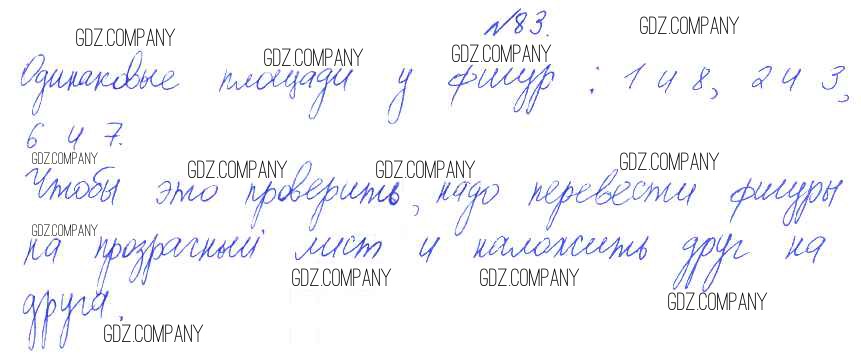 №83.
Одинаковые площади у фигур: 1 и 8, 2 и 3,
6 и 7.
Чтобы это проверить, надо перевести фигуры
на прозрачный лист и наложить друг на
друга.
GDZ.COMPANY
GDZ.COMPANY
GDZ.COMPANY
GDZ.COMPANY
GDZ.COMPANY
GDZ.COMPANY
GDZ.COMPANY
GDZ.COMPANY
GDZ.COMPANY
GDZ.COMPANY
GDZ.COMPANY
GDZ.COMPANY
GDZ.COMPANY